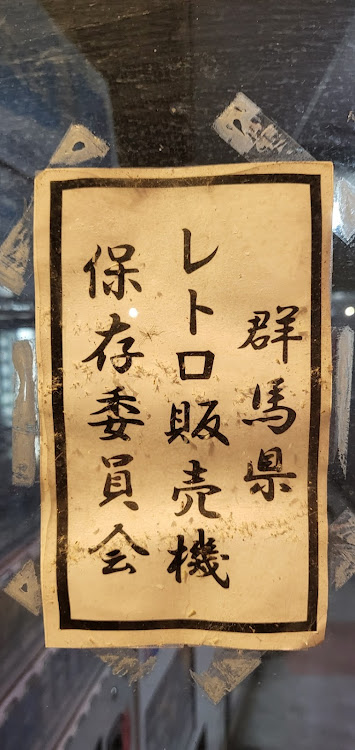 群馬県
レトロ販売機
保存委員会